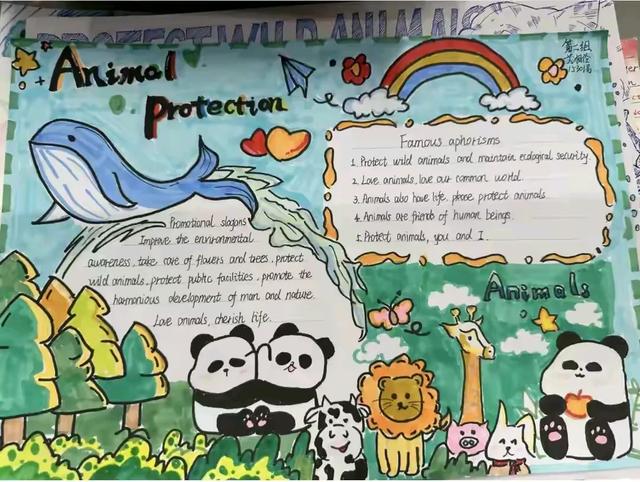 Animal
Protection
第二组
Famous aphorisms
1. Protect wild animals and maintain ecological security.
2. Love animals, love our common world.
3. Animals also have life, please protect animals.
4. Animals are friends of human beings.
5. Protect animals, you and I.
Promotional slogans
Improve the environmental
awareness, take care of flowers and trees, protect
wild animals, protect public facilities, promote the
harmonious development of man and nature.
Love animals, cherish life.
Animals